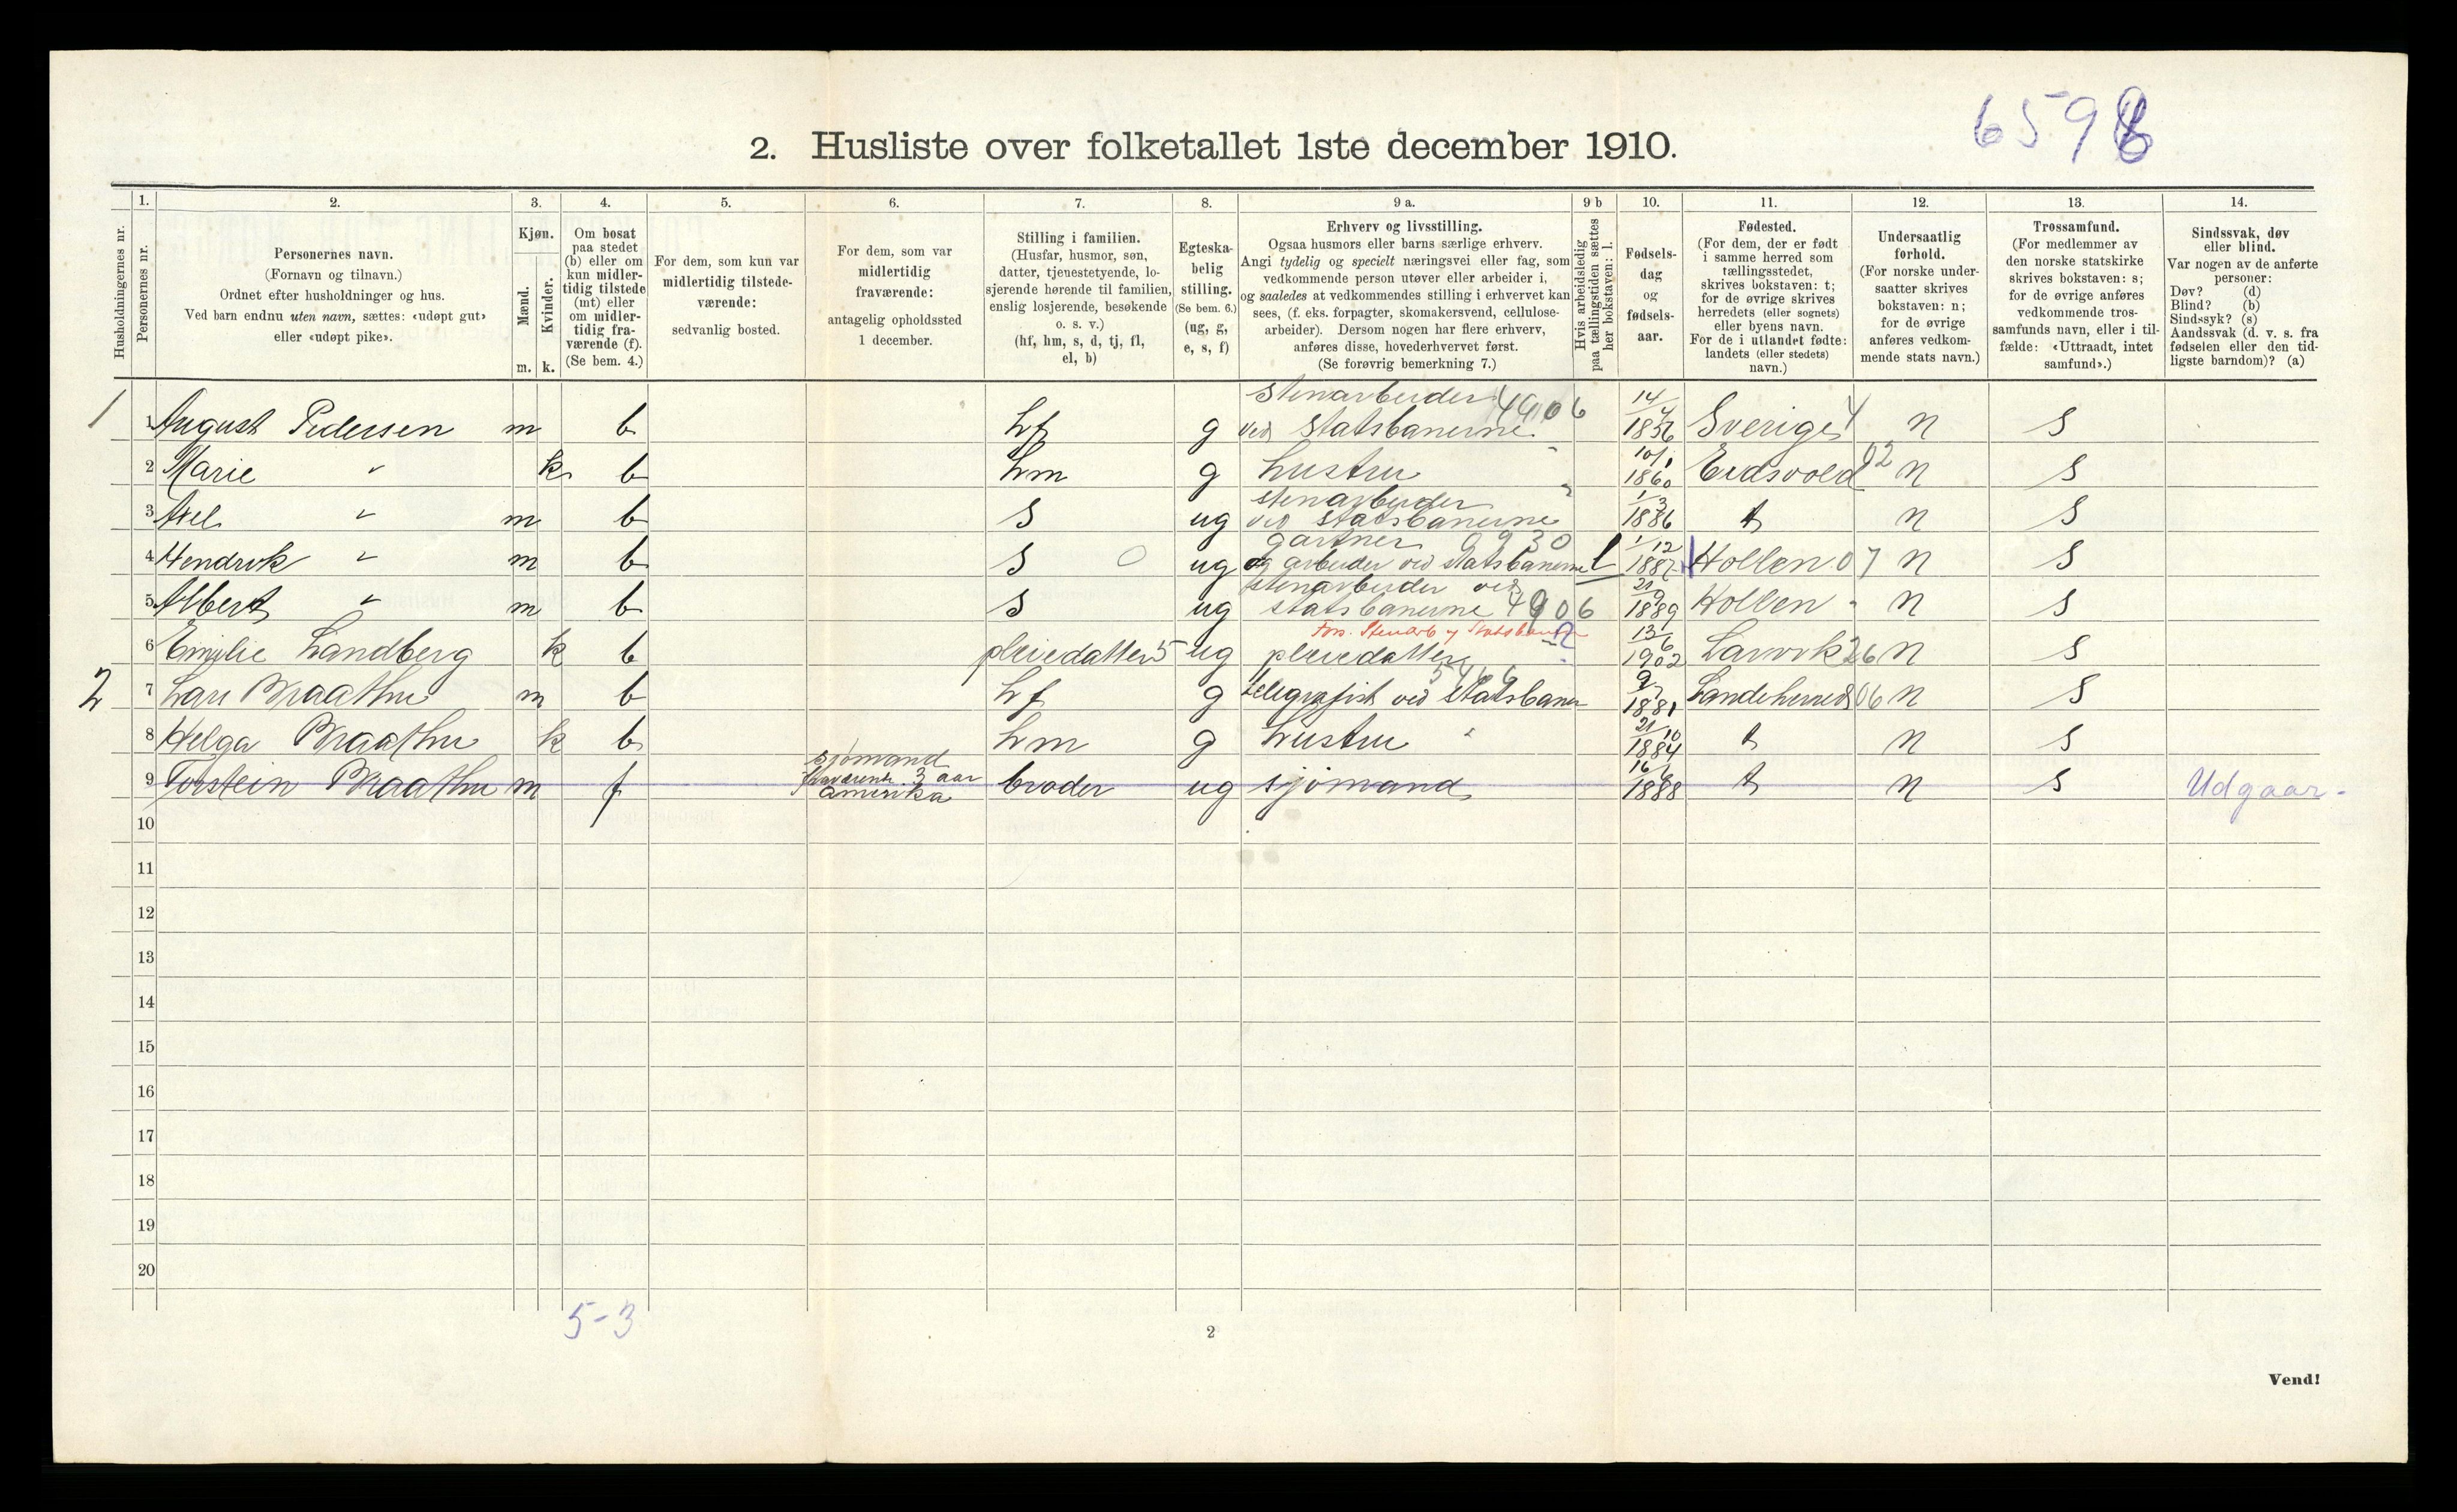 6598
2. Husliste over folketallet 1ste december 1910.
Husholdningernes nr.
1.
Personernes nr.
2.
Personernes navn.
(Fornavn og tilnavn.)
Ordnet efter husholdninger og hus.
Ved barn endnu uten navn, sættes: «udøpt gut»
eller «udøpt pike».
3.
Kjøn.
Mænd.
m.
Kvinder.
k.
4.
Om bosat
paa stedet
(b) eller om
kun midler-
tidig tilstede
(mt) eller
om midler-
tidig fra-
værende (f).
(Se bem. 4.)
5.
For dem, som kun var
midlertidig tilstede-
værende:
sedvanlig bosted.
6.
For dem, som var
midlertidig
fraværende:
antagelig opholdssted
1 december.
7.
Stilling i familien.
(Husfar, husmor, søn,
datter, tjenestetyende, lo-
sjerende hørende til familien,
enslig losjerende, besøkende
o. s. v.)
(hf, hm, s, d, tj, fl,
el, b)
8.
Egteska-
belig
stilling.
(Se bem. 6.)
(ug, g,
e, s, f)
9 a.
Erhverv og livsstilling.
Ogsaa husmors eller barns særlige erhverv.
Angi tydelig og specielt næringsvei eller fag, som
vedkommende person utøver eller arbeider i,
og saaledes at vedkommendes stilling i erhvervet kan
sees, (f. eks. forpagter, skomakersvend, cellulose-
arbeider). Dersom nogen har flere erhverv,
anføres disse, hovederhvervet først.
(Se forøvrig bemerkning 7.)
9 b
Hvis arbeidsledig
paa tællingstiden sættes
her bokstaven: l.
10.
Fødsels-
dag
og
fødsels-
aar.
11.
Fødested.
(For dem, der er født
i samme herred som
tællingsstedet,
skrives bokstaven: t;
for de øvrige skrives
herredets (eller sognets)
eller byens navn.
For de i utlandet fødte:
landets (eller stedets)
navn.)
12.
Undersaatlig
forhold.
(For norske under-
saatter skrives
bokstaven: n;
for de øvrige
anføres vedkom-
mende stats navn.)
13.
Trossamfund.
(For medlemmer av
den norske statskirke
skrives bokstaven: s;
for de øvrige anføres
vedkommende tros-
samfunds navn, eller i til-
fælde: «Uttraadt, intet
samfund».)
14.
Sindssvak, døv
eller blind.
Var nogen av de anførte
personer:
Døv? (d)
Blind? (b)
Sindssyk? (s)
Aandssvak (d. v. s. fra
fødselen eller den tid-
ligste barndom)? (a)
1 1 August Pedersen m b hf g stenarbeider 4906 ved statsbanerne 14/4 1856 Sverige 4 n s
2 Marie " k b hm g hustru " 10/1 1860 Eidsvold 02 n s
3 Axel " m b s ug stenarbeider ved statsbanerne 1/3 1886 t n s
4 Hendrik " m b s 0 ug gartner 0930 og arbeider ved statsbanerne l 1/12 1887 Hollen 07 n s
5 Albert " m b s ug stenarbeider ved statsbanerne 4906 1889 Hollen " n s
6 Emilie Landberg k b pleiedatter 5 ug Fors. Stenarb v Statsbanen pleiedatter 13/6 1902 Larvik 26 n s
2 7 Lars Braathu m b hf g telegrafist ved Statsbanen 1881 Sandeherred 06 n s
8 Helga Braathu k b hm g hustru " 21/10 1884 t n s
9 Torstein Braathu m f sjømand fraværende 3 aar amerika broder ug sjømand 1888 t n s Udgaar.
10
11
12
13
14
15
16
17
18
19
20
5-3
2
Vend!